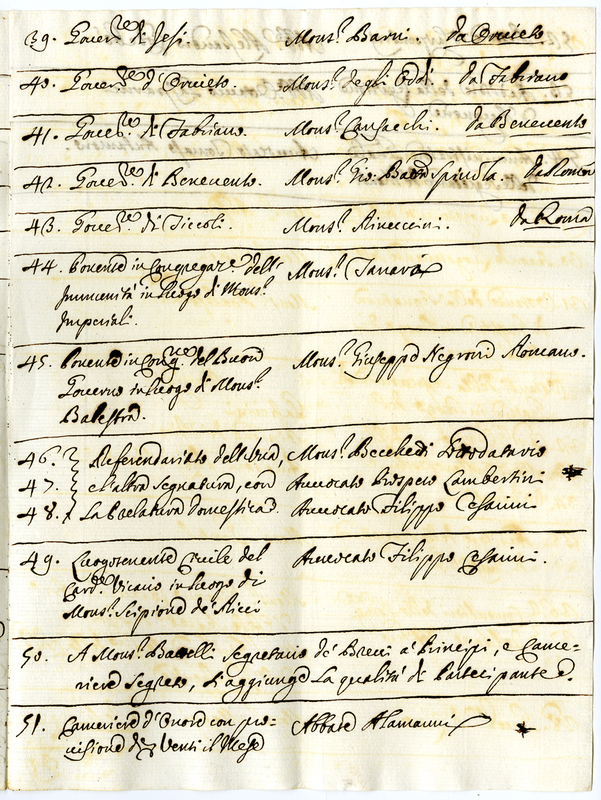 39. Gover.re di Jesi Mons.r Barni. da Orvieto
40. Gover.re d'Orvieto. Mons.r degli Oddi. da Fabriano
41. Gover.re di Fabriano. Mons.r Cansacchi. da Benevento
42. Gover.re di Benevento. Mons.r Gio: Batta Spinola. da Roma
43. Gover.re di Tivoli. Mons.r Aivuccini. da Roma
44. Ponente in Congregaz.e dell' Mons.r Tanara
Immunità in luogo di Mons.r
Imperiali.
45. Ponente in Cong.ne del Buon Mons.r Giuseppe Negroni Romano.
Governo in luogo di Mons.r
Balestra.
46. Referendariato dell'una, Mons.r Becchetti Prodatario
47. e l'altra segnatura, con Avvocato Prospero Lambertini
48. La Prelatura domestica. Avvocato Filippo Cesarini
49. Luogotenente Civile del Avvocato Filippo Cesarini.
Card.e Vicario in luogo di
Mons.r Scipione de Ricci
50. A Mons.r Battelli Segretario de' Brevi a' Principi, e Came=
riere Segreto, s'aggiunge La qualità di Partecipante
51. Cameriere d'Onore con pro= Abbate Alamanni
visione di Venti il Mese